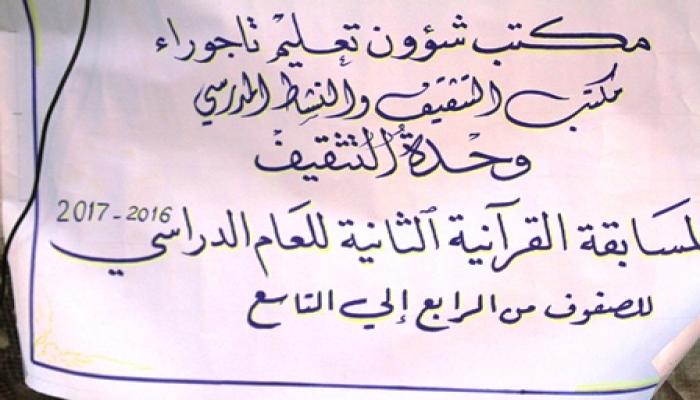 مكتب شؤون تعليم تاجوراء
مكتب التثقيف والنشط المدرسي
وحدة التثقيف
لمسابقة القرآنية الثانية للعام الدراسي 2016-2017
للصفوف من الرابع إلي التاسع